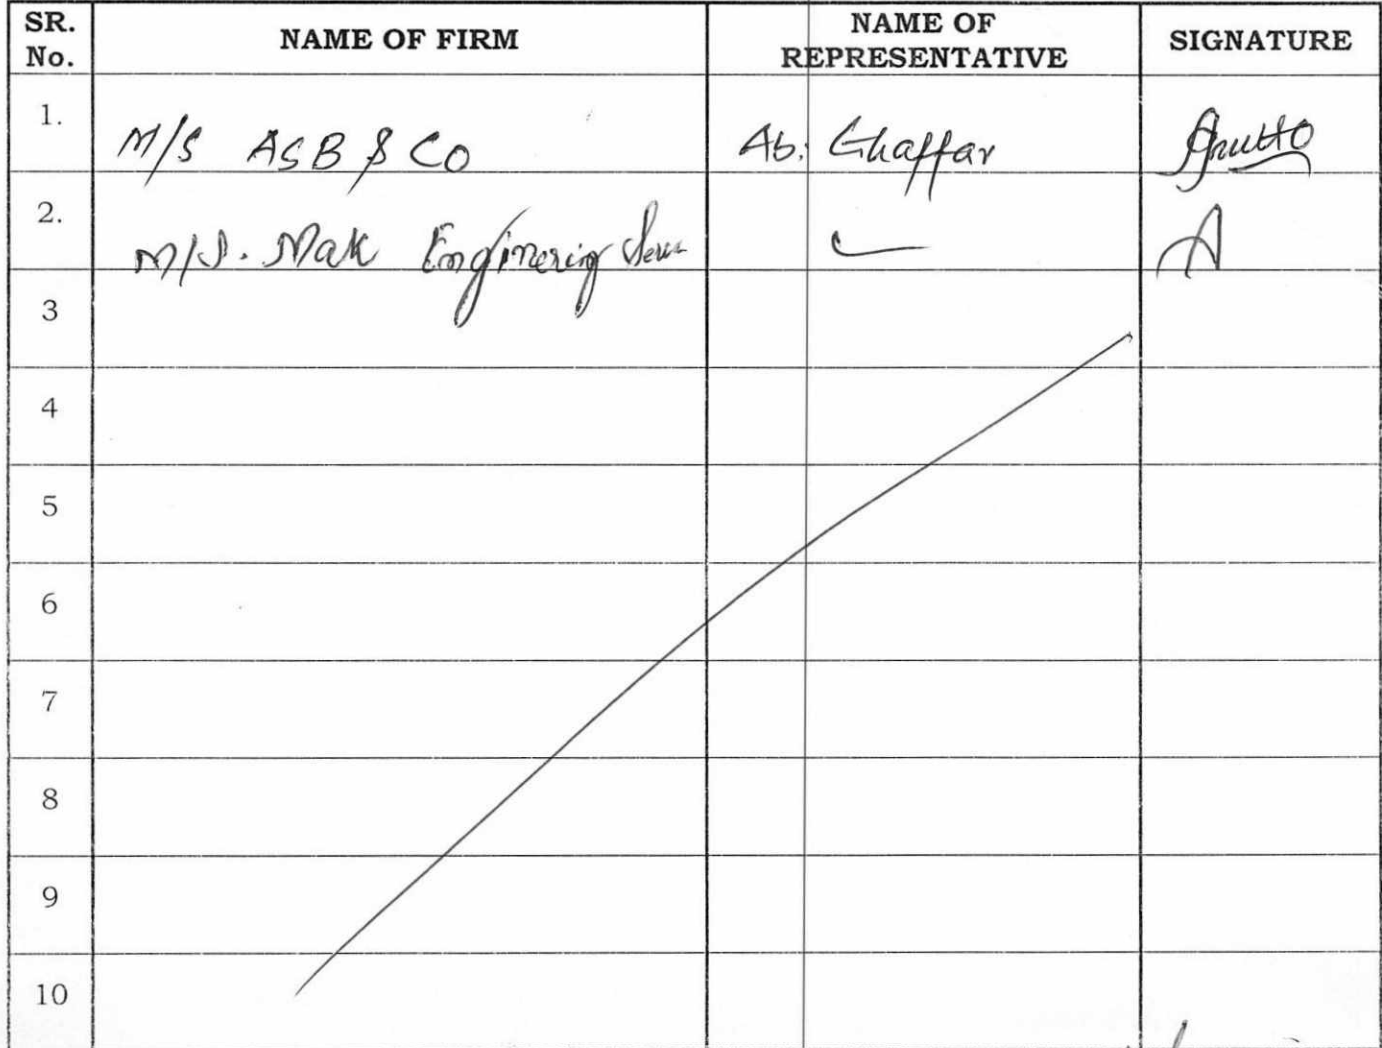 SR. No. NAME OF FIRM NAME OF REPRESENTATIVE SIGNATURE
1. M/S ASB & CO Ab. Ghaffar
2. M/S. Mak Enginering
3
4
5
6
7
8
9
10